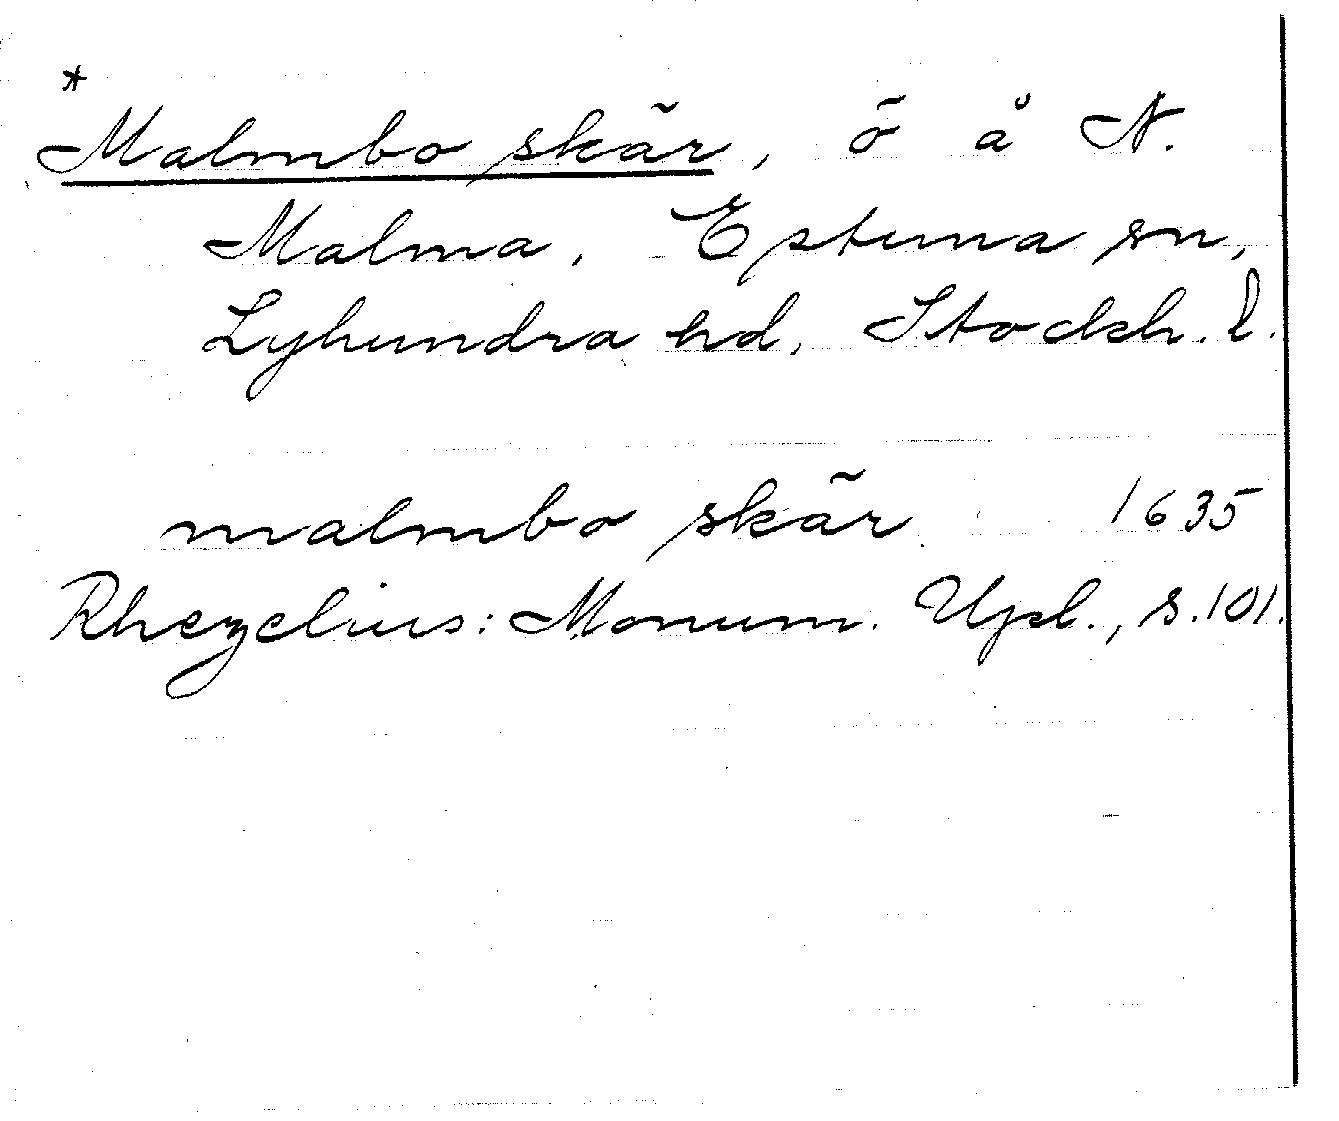 *
Malmbo skär, ö å N.
Malma, Estuna sn,
Lyhundra hd, Stockh. l.
malmbo skär 1635
Rhezelius: Monum. Upl., s. 101.